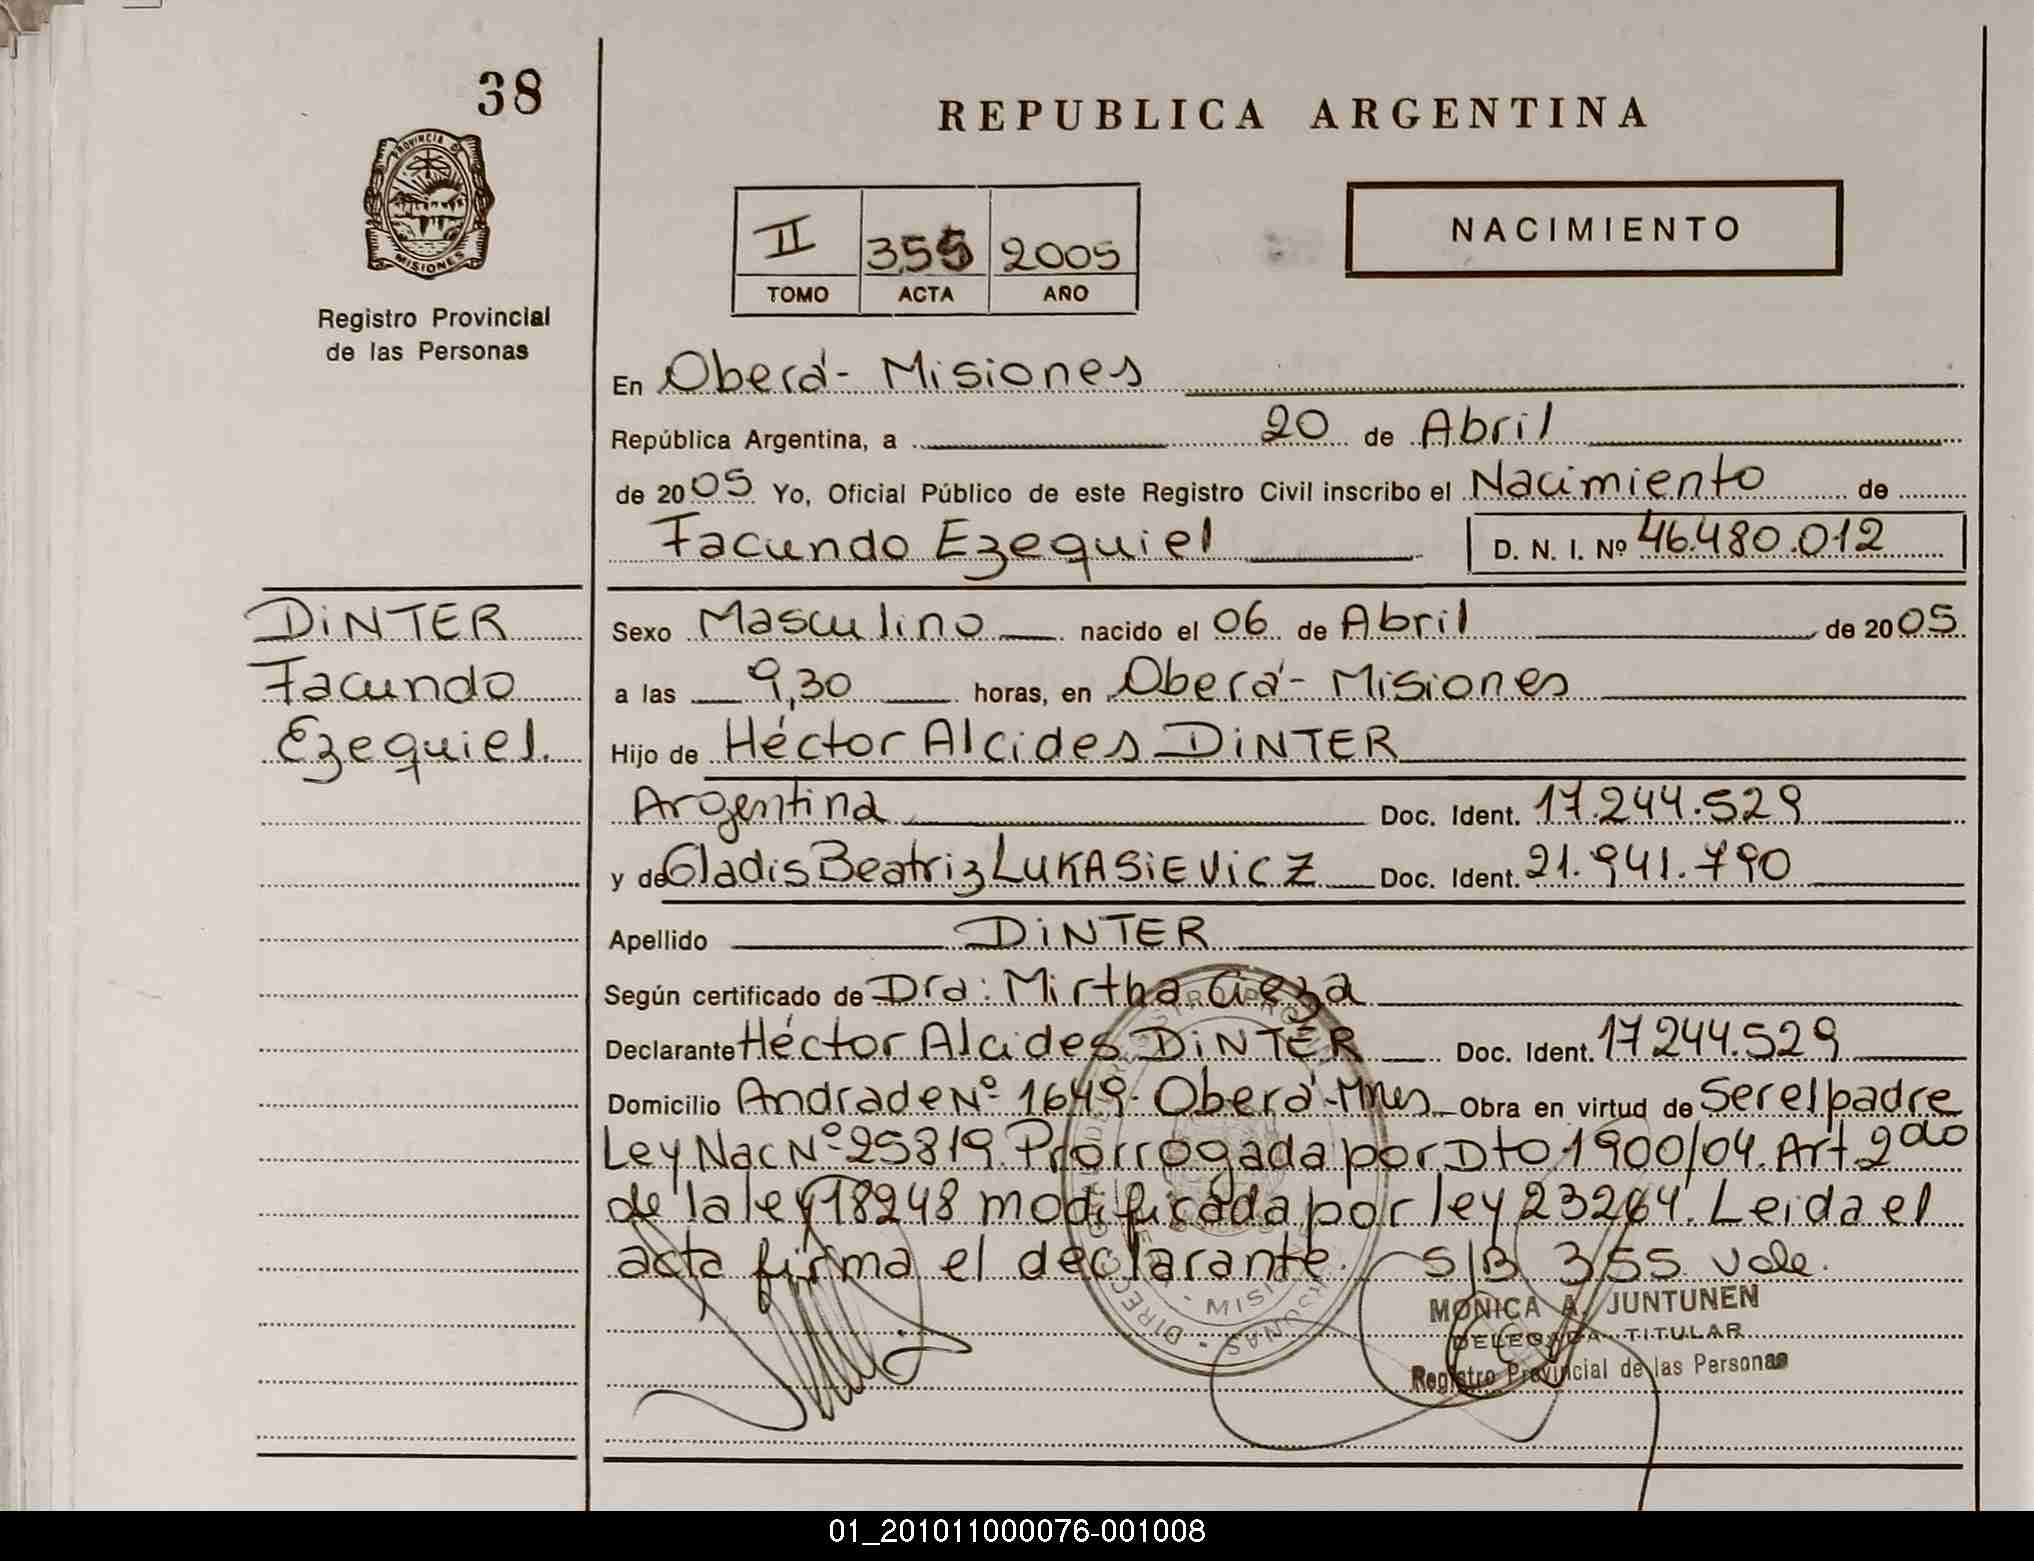 38
REPUBLICA ARGENTINA
PROVINCIA D
MISIONES
Registro Provincial
de las Personas
II 355 2005
TOMO ACTA AÑO
NACIMIENTO
En Oberá - Misiones
República Argentina, a 20 de Abril
de 2005 Yo, Oficial Público de este Registro Civil inscribo el Nacimiento de
Facundo Ezequiel D. N. I. Nº 46.480.012
DiNTER
Facundo
Ezequiel.
Sexo Masculino nacido el 06 de Abril de 2005
a las 9,30 horas, en Oberá - Misiones
Hijo de Héctor Alcides DiNTER
Argentina Doc. Ident. 17.244.529
y de Gladis Beatriz LUKASiEViCZ Doc. Ident. 21.941.790
Apellido DiNTER
Según certificado de Dra: Mirtha Cieza
Declarante Héctor Alcides DiNTER Doc. Ident. 17244.529
Domicilio Andrade Nº 1649- Oberá-Mnes Obra en virtud de Ser el padre
Ley Nac Nº 25819. Prorrogada por Dto 1900/04. Art 2do
de la ley 18248 modificada por ley 23264. Leida el
acta firma el declarante. S/B 355 Vale.
MONICA A. JUNTUNEN
DELEGADA TITULAR
Registro Provincial de las Personas
01_201011000076-001008